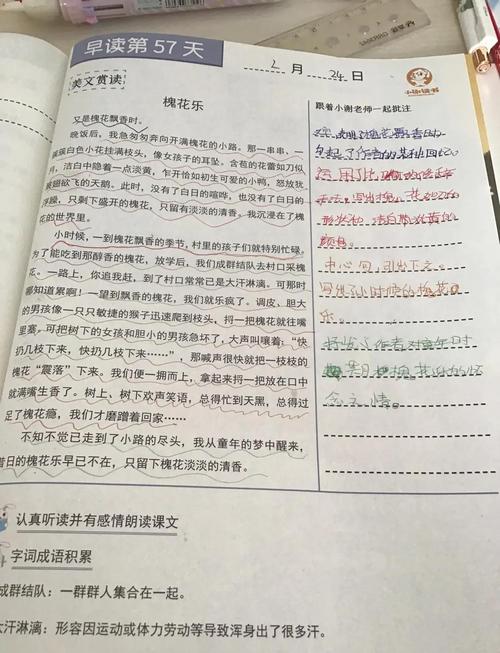 早读第 57 天
2 月 24 日
小谢读书
美文赏读
槐花乐
又是槐花飘香时。
晚饭后，我急匆匆奔向开满槐花的小路。那一串串、一
簇簇白色小花挂满枝头，像女孩子的耳坠。含苞的花蕾如刀似
月，洁白中隐着一点淡黄，乍开恰如初生可爱的小鸭，怒放犹
被翅欲飞的天鹅。此时，没有了白日的喧哗，也没有了白日的
浮躁，只剩下盛开的槐花，只留有淡淡的清香。我沉浸在了槐
花的世界里。
小时候，一到槐花飘香的季节，村里的孩子们就特别忙碌。
为了能吃到那醇香的槐花，放学后，我们成群结队去村口采槐
花。一路上，你追我赶，到了村口常常已是大汗淋漓。可那时
哪知道累啊！一望到飘香的槐花，我们就乐疯了。调皮、胆大
的男孩像一只只敏捷的猴子迅速爬到枝头，捋一把槐花就往嘴
里塞，可把树下的女孩和胆小的男孩急坏了，大声叫嚷着：“快
扔几枝下来，快扔几枝下来……”，那喊声很快就把一枝枝的
槐花“震落”下来。我们便一拥而上，拿起来捋一把放在口中
就满嘴生香了。树上，树下欢声笑语，总得忙到天黑，总得过
足了槐花瘾，我们才磨蹭着回家……
不知不觉已走到了小路的尽头，我从童年的梦中醒来，
昔日的槐花乐早已不在，只留下槐花淡淡的清香。
跟着小谢老师一起批注
颜色。
中心句，引出下文。
写出了小时候的槐花
乐。
抒发了作者对童年时
念之情。
认真听读并有感情朗读课文
字词成语积累
成群结队：一群群人集合在一起。
大汗淋漓：形容因运动或体力劳动等导致浑身出了很多汗。